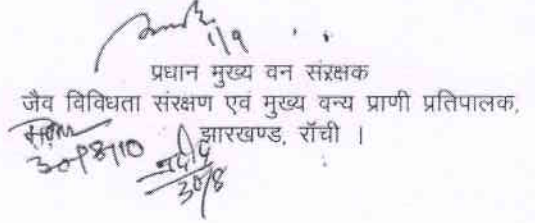 1/9
प्रधान मुख्य वन संरक्षक
जैव विविधता संरक्षण एवं मुख्य वन्य प्राणी प्रतिपालक,
झारखण्ड, रॉची ।
30/8/10
30/8